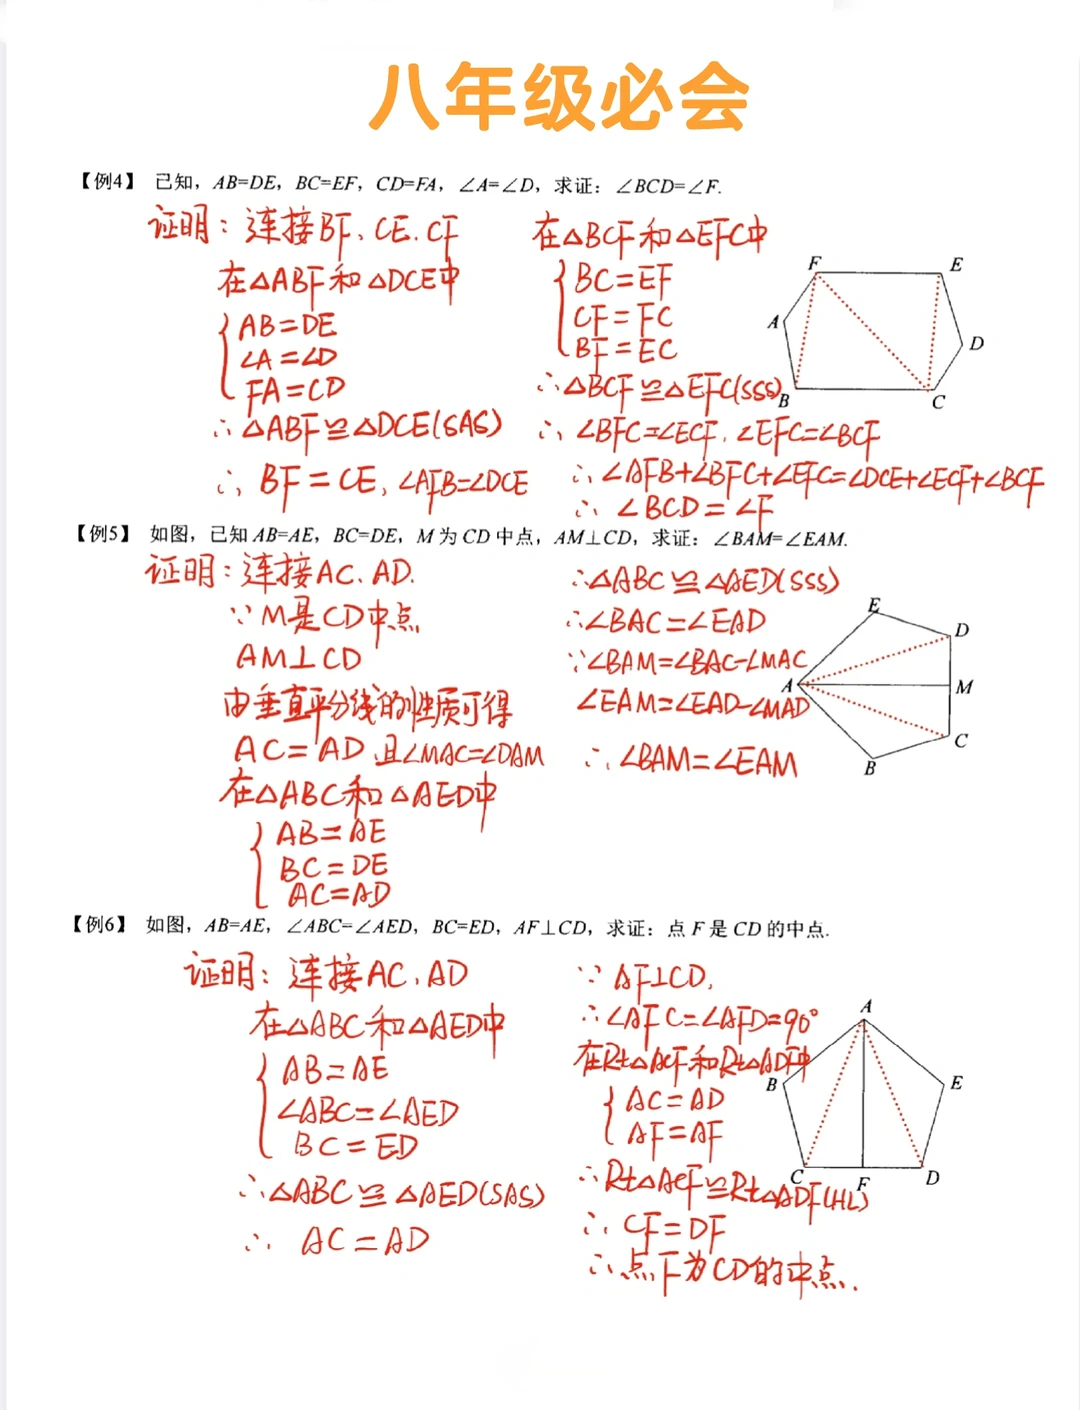 八年级必会
【例4】 已知，AB=DE，BC=EF，CD=FA，∠A=∠D，求证：∠BCD=∠F.
证明：连接BF、CE、CF
在△ABF和△DCE中
AB=DE
∠A=∠D
FA=CD
∴△ABF≌△DCE(SAS)
∴BF=CE,∠AFB=∠DCE
在△BCF和△EFC中
BC=EF
CF=FC
BF=EC
∴△BCF≌△EFC(SSS)
∴∠BFC=∠ECF,∠EFC=∠BCF
∴∠AFB+∠BFC+∠EFC=∠DCE+∠ECF+∠BCF
∴∠BCD=∠F
F
E
A
D
B
C
【例5】 如图，已知AB=AE，BC=DE，M为CD中点，AM⊥CD，求证：∠BAM=∠EAM.
证明：连接AC、AD.
∵M是CD中点
AM⊥CD
由垂直平分线的性质可得
AC=AD且∠MAC=∠DAM
在△ABC和△AED中
AB=AE
BC=DE
AC=AD
∴△ABC≌△AED(SSS)
∴∠BAC=∠EAD
∵∠BAM=∠BAC-∠MAC
∠EAM=∠EAD-∠MAD
∴∠BAM=∠EAM
E
D
A
M
C
B
【例6】 如图，AB=AE，∠ABC=∠AED，BC=ED，AF⊥CD，求证：点F是CD的中点.
证明：连接AC、AD
在△ABC和△AED中
AB=AE
∠ABC=∠AED
BC=ED
∴△ABC≌△AED(SAS)
∴AC=AD
∵AF⊥CD,
∴∠AFC=∠AFD=90°
在Rt△ACF和Rt△ADF中
AC=AD
AF=AF
∴Rt△ACF≌Rt△ADF(HL)
∴CF=DF
∴点F为CD的中点.
A
B
E
C
F
D